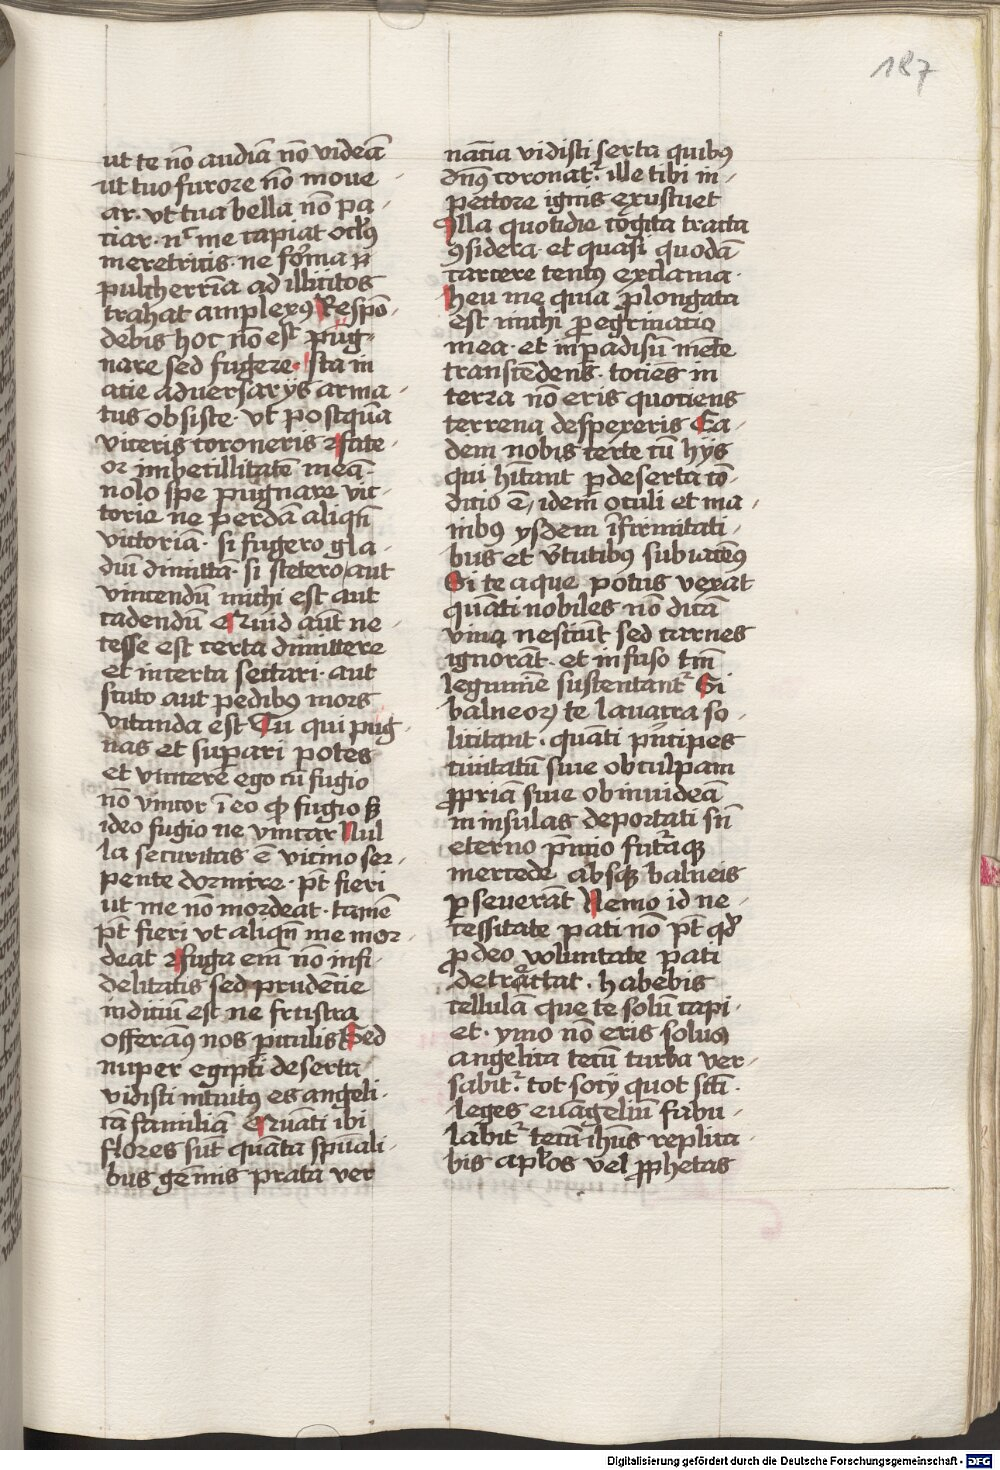 187
ut te nō audiā nō videā
ut tuo furore nō moue
ar. vt tua bella nō pa
ciar. nᶜ me capiat oclꝰ
meretricis. ne forma
pulcherria ad illicitos
trahat amplexꝰ Respō
debis hoc nō est pug
nare sed fugere. sta in
acie adversarijs arma
tus obsiste. vt postquā
viceris coroneris fate
or imbecillitatē meā.
nolo spe pugnare vic
torie ne perdā aliqn̄
victoriā. si fugero gla
diū dimittā. si stetero aut
vincendū michi est aut
cadendū Quid aūt ne
cesse est certa dimittere
et incerta sectari. aut
scuto aut pedibꝰ mors
vitanda est Tu qui pug
nas et supari potes
et vincere ego cū fugio
nō vincor ī eo qꝫ fugio sꝫ
ideo fugio ne vincar Nul
la securitas ē vicino ser
pente dormire. pt̄ fieri
ut me nō mordeat. tamē
pt̄ fieri vt aliqn̄ me mor
deat fuga em̄ nō infi
delitatis sed prudēcie
indiciū est ne frustra
offeramꝰ nos piculis Sed
nuper egipti deserta
vidisti intuitꝰ es angeli
cā familiā Quāti ibi
flores sūt quāta spūali
bus gēmis prata ver
nācia vidisti serta quibꝰ
dn̄s coronatͬ. ille tibi in
pectore ignis exustuet
Illa quotidie cogita tracta
ꝯsidera. et quasi quodā
carcere tentꝰ exclama.
heu me quia ꝓlongata
est michi pegrinatio
mea. et inpadisū mēte
transcēdens. tociēs in
terra nō eris quotiens
terrena despexeris Ea
dem nobis certe cū hijs
qui hītant p deserta cō
dicio ē, idem oculi et ma
nibꝰ ysdem īfirmitati
bus et v̄tutibꝰ subiacēꝰ
Si te aque potus vexat
quāti nobiles nō dicā
vina nesciūt sed carnes
ignorāt. et infuso tm̄
legumīe sustentantͬ Si
balneoꝝ te lauacra so
licitant. quāti pͥncipes
ciuitatū siue ob culpam
ꝓpriā siue ob inuideā
in insulas deportati sūt
eterno pͥmio futaqꝫ
mercede absqꝫ balneis
pseuerāt Nemo id ne
cessitate pati nō pt̄ qd̄
ꝓ deo voluntate pati
detractat. habebis
cellulā que te solū capi
et. ymo nō eris solus
angelica tecū turba ver
sabitͬ. tot socij quot sc̄i.
leges euāgeliū fabu
labitͬ tecū ihūs replica
bis aplos vel ꝓphetas
Digitalisierung gefördert durch die Deutsche Forschungsgemeinschaft - DFG